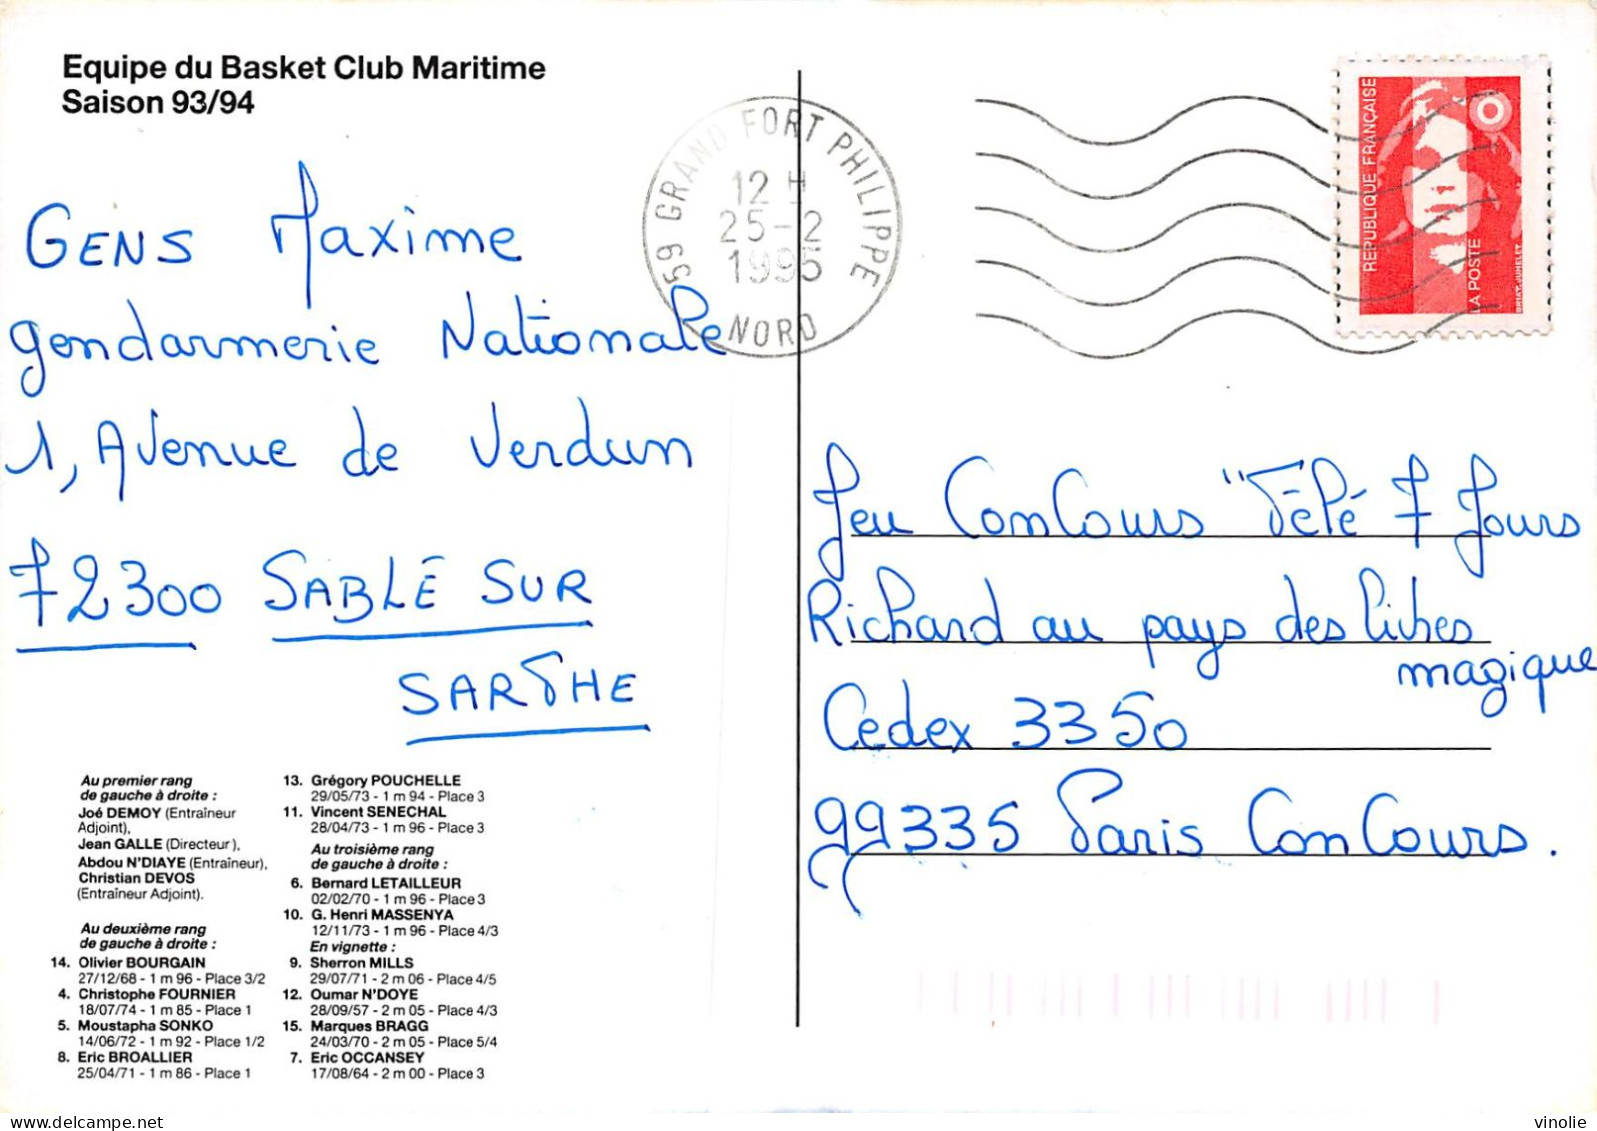 Equipe du Basket Club Maritime
Saison 93/94
GENS Maxime
gendarmerie Nationale
1, Avenue de Verdun
72300 SABLÉ SUR
SARTHE
Au premier rang
de gauche à droite :
Joé DEMOY (Entraîneur
Adjoint),
Jean GALLE (Directeur),
Abdou N'DIAYE (Entraîneur),
Christian DEVOS
(Entraîneur Adjoint).
Au deuxième rang
de gauche à droite :
14. Olivier BOURGAIN
27/12/68 - 1 m 96 - Place 3/2
4. Christophe FOURNIER
18/07/74 - 1 m 85 - Place 1
5. Moustapha SONKO
14/06/72 - 1 m 92 - Place 1/2
8. Eric BROALLIER
25/04/71 - 1 m 86 - Place 1
13. Grégory POUCHELLE
29/05/73 - 1 m 94 - Place 3
11. Vincent SENECHAL
28/04/73 - 1 m 96 - Place 3
Au troisième rang
de gauche à droite :
6. Bernard LETAILLEUR
02/02/70 - 1 m 96 - Place 3
10. G. Henri MASSENYA
12/11/73 - 1 m 96 - Place 4/3
En vignette :
9. Sherron MILLS
29/07/71 - 2 m 06 - Place 4/5
12. Oumar N'DOYE
28/09/57 - 2 m 05 - Place 4/3
15. Marques BRAGG
24/03/70 - 2 m 05 - Place 5/4
7. Eric OCCANSEY
17/08/64 - 2 m 00 - Place 3
59 GRAND FORT PHILIPPE
12 H
25-2
1995
NORD
REPUBLIQUE FRANÇAISE
LA POSTE
BRIAT-JUMELET
Jeu Concours "Télé 7 Jours
Richard au pays des livres
magique
Cedex 3350
99335 Paris Concours.
vinolie